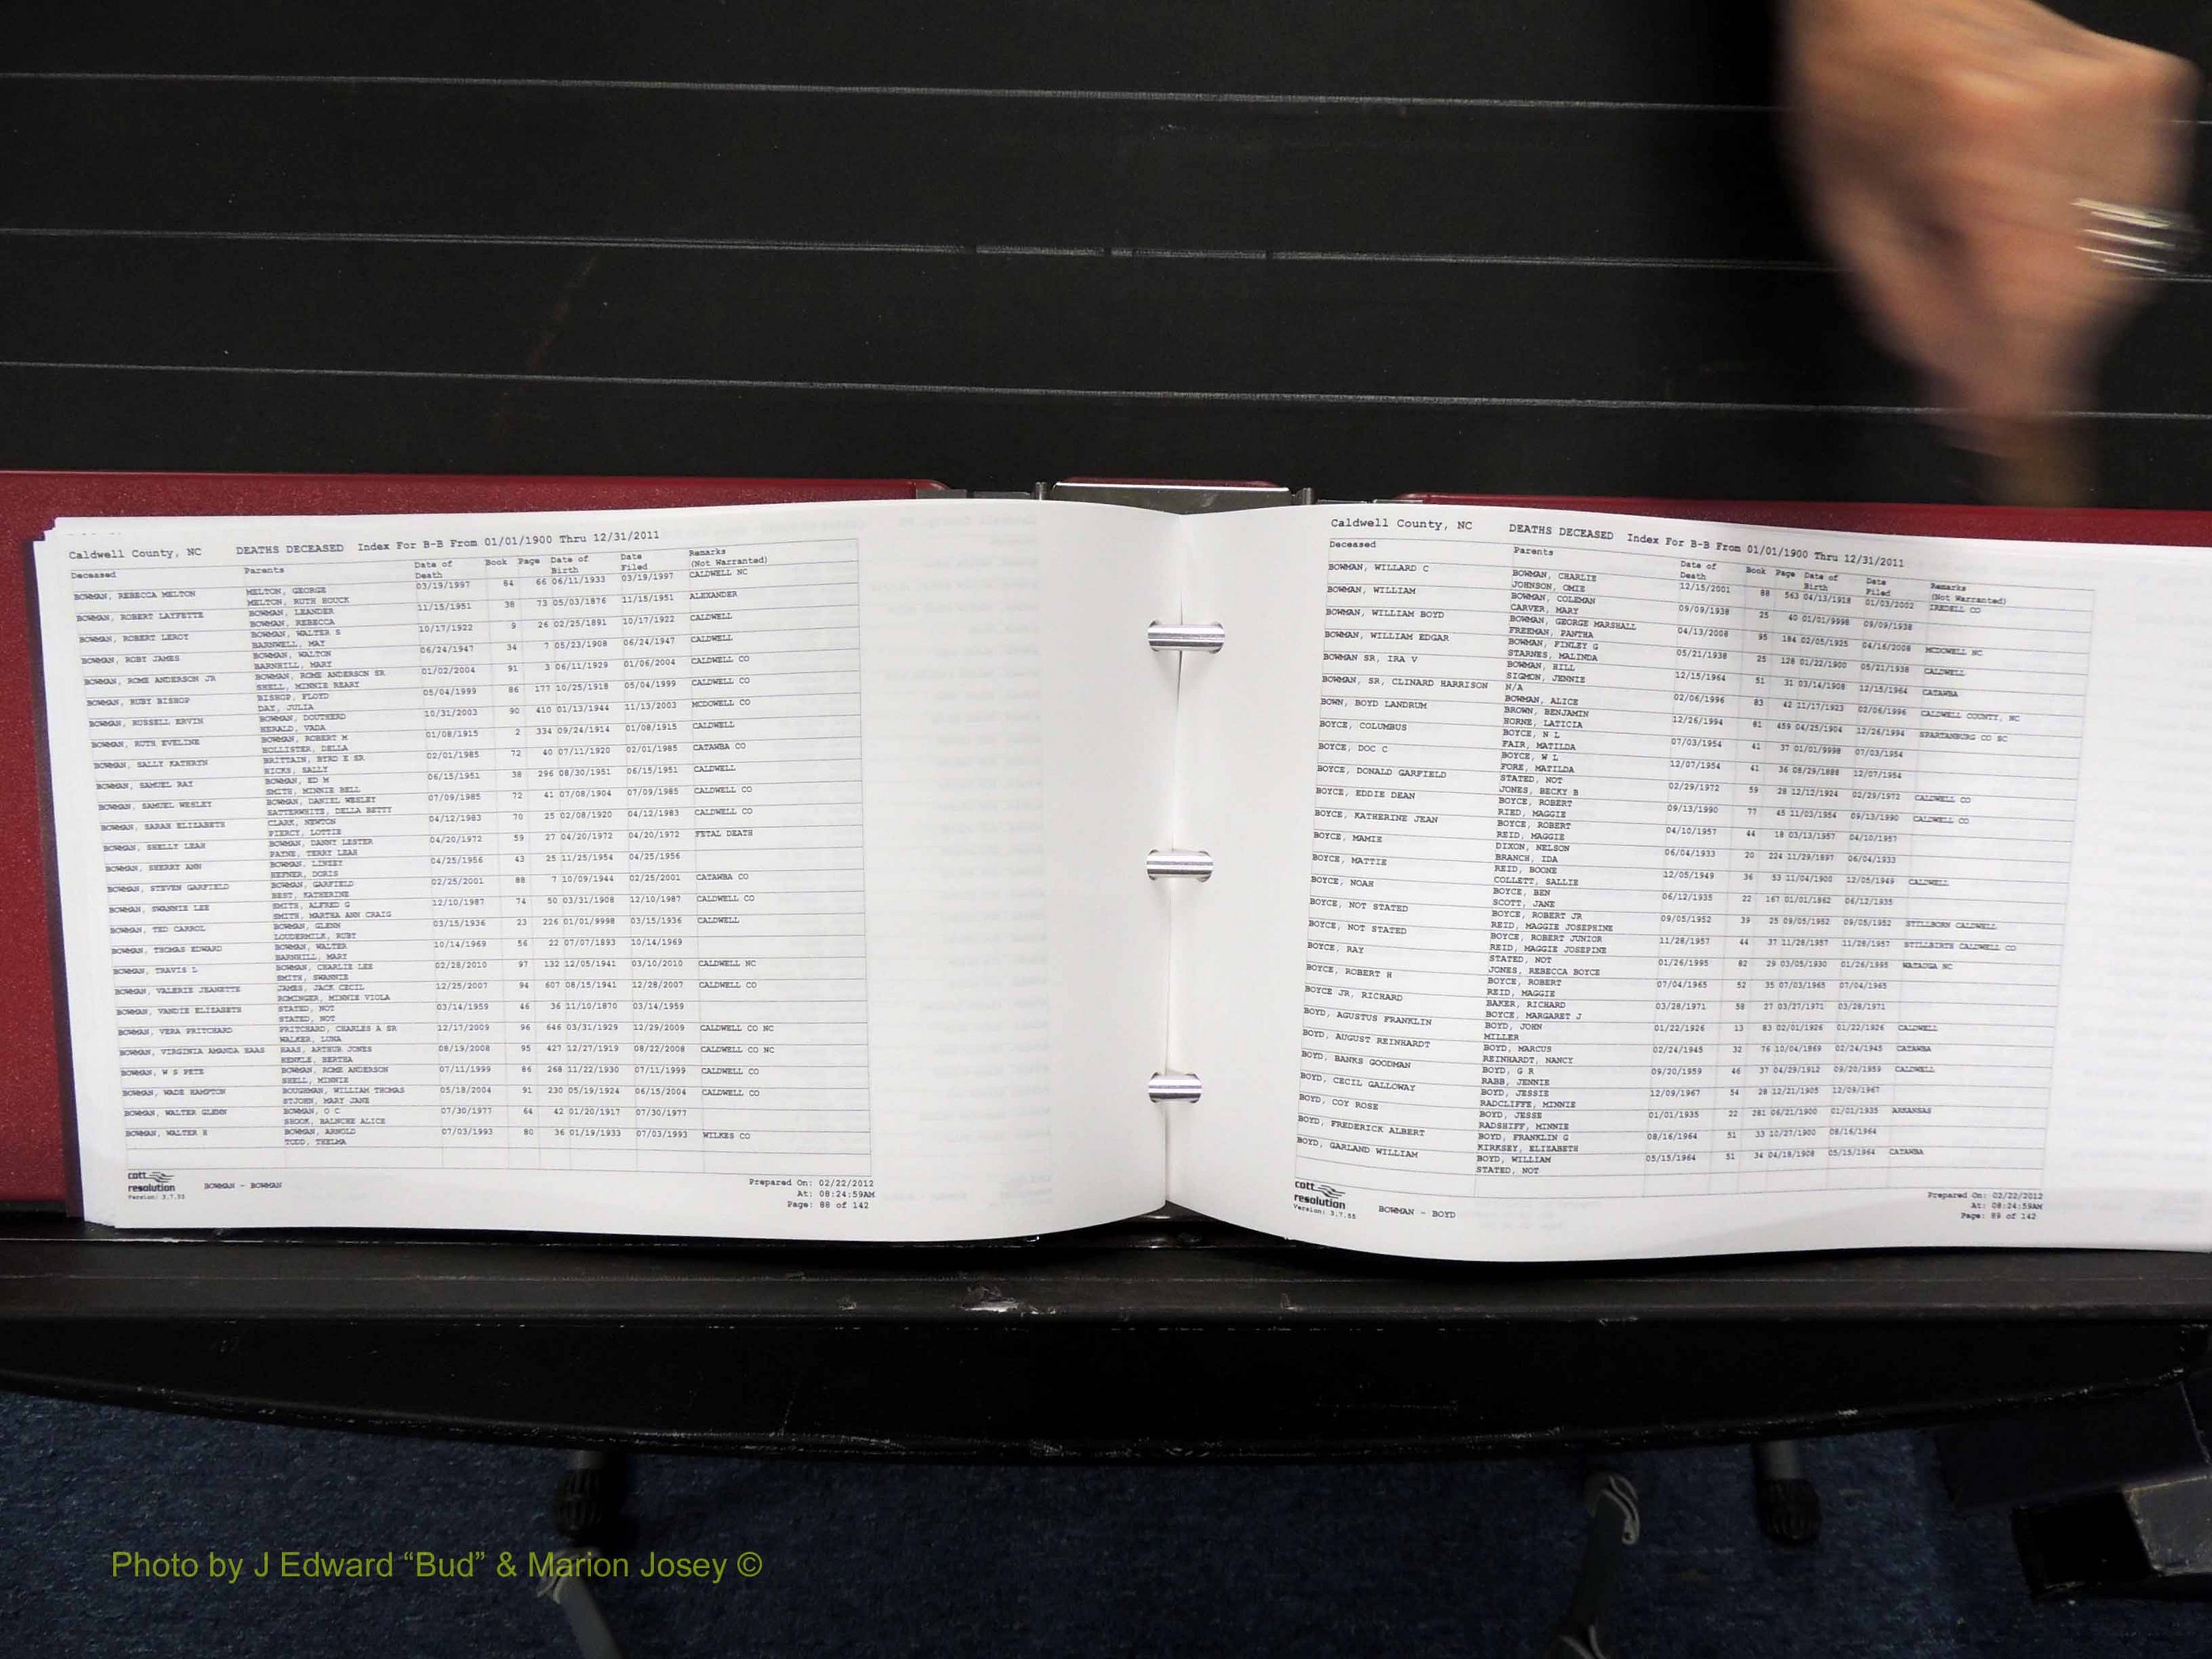 Caldwell County, NC DEATHS DECEASED Index For B-B From 01/01/1900 Thru 12/31/2011
Deceased Parents Date of Death Book Page Date of Birth Date Filed Remarks (Not Warranted)
BOWMAN, REBECCA MELTON MELTON, GEORGE 03/19/1997 84 66 06/11/1933 03/19/1997 CALDWELL NC
MELTON, RUTH HOUCK
BOWMAN, ROBERT LAFFETTE BOWMAN, LEANDER 11/15/1951 38 73 05/03/1876 11/15/1951 ALEXANDER
BOWMAN, REBECCA
BOWMAN, ROBERT LEROY BOWMAN, WALTER S 10/17/1922 9 26 02/25/1891 10/17/1922 CALDWELL
BARNWELL, MAY
BOWMAN, ROBY JAMES BOWMAN, WALTON 06/24/1947 34 7 05/23/1908 06/24/1947 CALDWELL
BARNHILL, MARY
BOWMAN, ROME ANDERSON JR BOWMAN, ROME ANDERSON SR 01/02/2004 91 3 06/11/1929 01/06/2004 CALDWELL CO
SHELL, MINNIE REARY
BOWMAN, RUBY BISHOP BISHOP, FLOYD 05/04/1999 86 177 10/25/1918 05/04/1999 CALDWELL CO
DAY, JULIA
BOWMAN, RUSSELL ERVIN BOWMAN, DOUTHERD 10/31/2003 90 410 01/13/1944 11/13/2003 MCDOWELL CO
HERALD, VADA
BOWMAN, RUTH EVELINE BOWMAN, ROBERT M 01/08/1915 2 334 09/24/1914 01/08/1915 CALDWELL
HOLLISTER, DELLA
BOWMAN, SALLY KATHRYN BRITTAIN, BYRD E SR 02/01/1985 72 40 07/11/1920 02/01/1985 CATAWBA CO
HICKS, SALLY
BOWMAN, SAMUEL RAY BOWMAN, ED M 06/15/1951 38 296 08/30/1951 06/15/1951 CALDWELL
SMITH, MINNIE BELL
BOWMAN, SAMUEL WESLEY BOWMAN, DANIEL WESLEY 07/09/1985 72 41 07/08/1904 07/09/1985 CALDWELL CO
SATTERWHITE, DELLA BETTY
BOWMAN, SARAH ELIZABETH CLARK, NEWTON 04/12/1983 70 25 02/08/1920 04/12/1983 CALDWELL CO
PIERCY, LOTTIE
BOWMAN, SHELLY LEAH BOWMAN, DANNY LESTER 04/20/1972 59 27 04/20/1972 04/20/1972 FETAL DEATH
PAYNE, TERRY LEAH
BOWMAN, SHERRY ANN BOWMAN, LINZEY 04/25/1956 43 25 11/25/1954 04/25/1956
HEFNER, DORIS
BOWMAN, STEVEN GARFIELD BOWMAN, GARFIELD 02/25/2001 88 7 10/09/1944 02/25/2001 CATAWBA CO
BEST, KATHERINE
BOWMAN, SWANNIE LEE SMITH, ALFRED G 12/10/1987 74 50 03/31/1908 12/10/1987 CALDWELL CO
SMITH, MARTHA ANN CRAIG
BOWMAN, TED CARROL BOWMAN, GLENN 03/15/1936 23 226 01/01/9998 03/15/1936 CALDWELL
LOUDERMILK, RUBY
BOWMAN, THOMAS EDWARD BOWMAN, WALTER 10/14/1969 56 22 07/07/1893 10/14/1969
BARNHILL, MARY
BOWMAN, TRAVIS L BOWMAN, CHARLIE LEE 02/28/2010 97 132 12/05/1941 03/10/2010 CALDWELL NC
SMITH, SWANNIE
BOWMAN, VALERIE JEANETTE JAMES, JACK CECIL 12/25/2007 94 607 08/15/1941 12/28/2007 CALDWELL CO
ROMINGER, MINNIE VIOLA
BOWMAN, VANDIE ELIZABETH STATED, NOT 03/14/1959 46 36 11/10/1870 03/14/1959
STATED, NOT
BOWMAN, VERA PRITCHARD PRITCHARD, CHARLES A SR 12/17/2009 96 646 03/31/1929 12/29/2009 CALDWELL CO NC
WALKER, LUNA
BOWMAN, VIRGINIA AMANDA HAAS HAAS, ARTHUR JONES 08/19/2008 95 427 12/27/1919 08/22/2008 CALDWELL CO NC
HENKLE, BERTHA
BOWMAN, W S PETE BOWMAN, ROME ANDERSON 07/11/1999 86 268 11/22/1930 07/11/1999 CALDWELL CO
SHELL, MINNIE
BOWMAN, WADE HAMPTON BOUGHMAN, WILLIAM THOMAS 05/18/2004 91 230 05/19/1924 06/15/2004 CALDWELL CO
STJOHN, MARY JANE
BOWMAN, WALTER GLENN BOWMAN, O C 07/30/1977 64 42 01/20/1917 07/30/1977
SHOOK, BALNCHE ALICE
BOWMAN, WALTER H BOWMAN, ARNOLD 07/03/1993 80 36 01/19/1933 07/03/1993 WILKES CO
TODD, THELMA
cott resolution
Version: 3.7.55
BOWMAN - BOWMAN
Prepared On: 02/22/2012
At: 08:24:59AM
Page: 88 of 142
Caldwell County, NC DEATHS DECEASED Index For B-B From 01/01/1900 Thru 12/31/2011
Deceased Parents Date of Death Book Page Date of Birth Date Filed Remarks (Not Warranted)
BOWMAN, WILLARD C BOWMAN, CHARLIE 12/15/2001 88 563 04/13/1918 01/03/2002 IREDELL CO
JOHNSON, OMIE
BOWMAN, WILLIAM BOWMAN, COLEMAN 09/09/1938 25 40 01/01/9998 09/09/1938
CARVER, MARY
BOWMAN, WILLIAM BOYD BOWMAN, GEORGE MARSHALL 04/13/2008 95 184 02/05/1925 04/16/2008 MCDOWELL NC
FREEMAN, PANTHA
BOWMAN, WILLIAM EDGAR BOWMAN, FINLEY G 05/21/1938 25 128 01/22/1900 05/21/1938 CALDWELL
STARNES, MALINDA
BOWMAN SR, IRA V BOWMAN, HILL 12/15/1964 51 31 03/14/1908 12/15/1964 CATAWBA
SIGMON, JENNIE
BOWMAN, SR, CLINARD HARRISON N/A 02/06/1996 83 42 11/17/1923 02/06/1996 CALDWELL COUNTY, NC
BOWMAN, ALICE
BOWN, BOYD LANDRUM BROWN, BENJAMIN 12/26/1994 81 459 04/25/1904 12/26/1994 SPARTANBURG CO SC
HORNE, LATICIA
BOYCE, COLUMBUS BOYCE, N L 07/03/1954 41 37 01/01/9998 07/03/1954
FAIR, MATILDA
BOYCE, DOC C BOYCE, W L 12/07/1954 41 36 08/29/1888 12/07/1954
FORE, MATILDA
BOYCE, DONALD GARFIELD STATED, NOT 02/29/1972 59 28 12/12/1924 02/29/1972 CALDWELL CO
JONES, BECKY B
BOYCE, EDDIE DEAN BOYCE, ROBERT 09/13/1990 77 45 11/03/1954 09/13/1990 CALDWELL CO
RIED, MAGGIE
BOYCE, KATHERINE JEAN BOYCE, ROBERT 04/10/1957 44 18 03/13/1957 04/10/1957
REID, MAGGIE
BOYCE, MAMIE DIXON, NELSON 06/04/1933 20 224 11/29/1897 06/04/1933
BRANCH, IDA
BOYCE, MATTIE REID, BOONE 12/05/1949 36 53 11/04/1900 12/05/1949 CALDWELL
COLLETT, SALLIE
BOYCE, NOAH BOYCE, BEN 06/12/1935 22 167 01/01/1862 06/12/1935
SCOTT, JANE
BOYCE, NOT STATED BOYCE, ROBERT JR 09/05/1952 39 25 09/05/1952 09/05/1952 STILLBORN CALDWELL
REID, MAGGIE JOSEPHINE
BOYCE, NOT STATED BOYCE, ROBERT JUNIOR 11/28/1957 44 37 11/28/1957 11/28/1957 STILLBIRTH CALDWELL CO
REID, MAGGIE JOSEPINE
BOYCE, RAY STATED, NOT 01/26/1995 82 29 03/05/1930 01/26/1995 WATAUGA NC
JONES, REBECCA BOYCE
BOYCE, ROBERT H BOYCE, ROBERT 07/04/1965 52 35 07/03/1965 07/04/1965
REID, MAGGIE
BOYCE JR, RICHARD BAKER, RICHARD 03/28/1971 58 27 03/27/1971 03/28/1971
BOYCE, MARGARET J
BOYD, AGUSTUS FRANKLIN BOYD, JOHN 01/22/1926 13 83 02/01/1926 01/22/1926 CALDWELL
MILLER
BOYD, AUGUST REINHARDT BOYD, MARCUS 02/24/1945 32 76 10/04/1869 02/24/1945 CATAWBA
REINHARDT, NANCY
BOYD, BANKS GOODMAN BOYD, G R 09/20/1959 46 37 04/29/1912 09/20/1959 CALDWELL
RABB, JENNIE
BOYD, CECIL GALLOWAY BOYD, JESSIE 12/09/1967 54 28 12/21/1905 12/09/1967
RADCLIFFE, MINNIE
BOYD, COY ROSE BOYD, JESSE 01/01/1935 22 281 06/21/1900 01/01/1935 ARKANSAS
RADSHIFF, MINNIE
BOYD, FREDERICK ALBERT BOYD, FRANKLIN G 08/16/1964 51 33 10/27/1900 08/16/1964
KIRKSEY, ELIZABETH
BOYD, GARLAND WILLIAM BOYD, WILLIAM 05/15/1964 51 34 04/18/1908 05/15/1964 CATAWBA
STATED, NOT
cott resolution
Version: 3.7.55
BOWMAN - BOYD
Prepared On: 02/22/2012
At: 08:24:59AM
Page: 89 of 142
Photo by J Edward “Bud” & Marion Josey ©